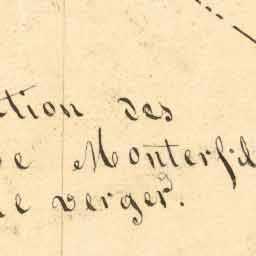 ction des
de Monterfil
le verger.